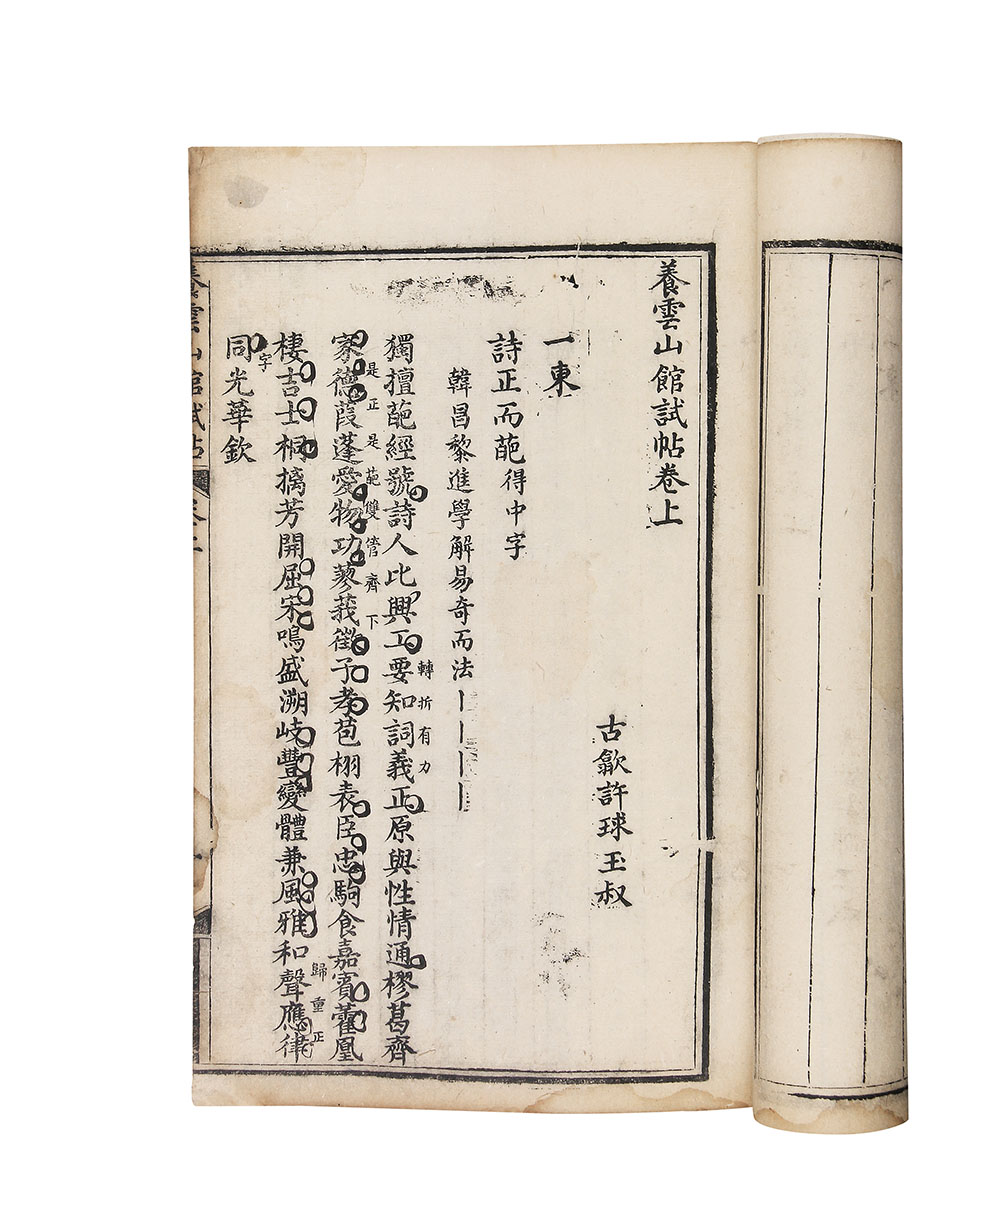 養雲山館試帖卷上
古歙許球玉叔
一東
詩正而葩得中字
韓昌黎進學解易奇而法丨丨丨丨
轉折有力
獨擅葩經號詩人比興工要知詞義正原與性情通樛葛齊
是正是葩雙管齊下
家德葭蓬愛物功蓼莪徵子孝苞栩表臣忠駒食嘉賓藿凰
歸重正
棲吉士桐摛芳開屈宋鳴盛溯岐豐變體兼風雅和聲應律
字
同光華欽
養雲山館試帖